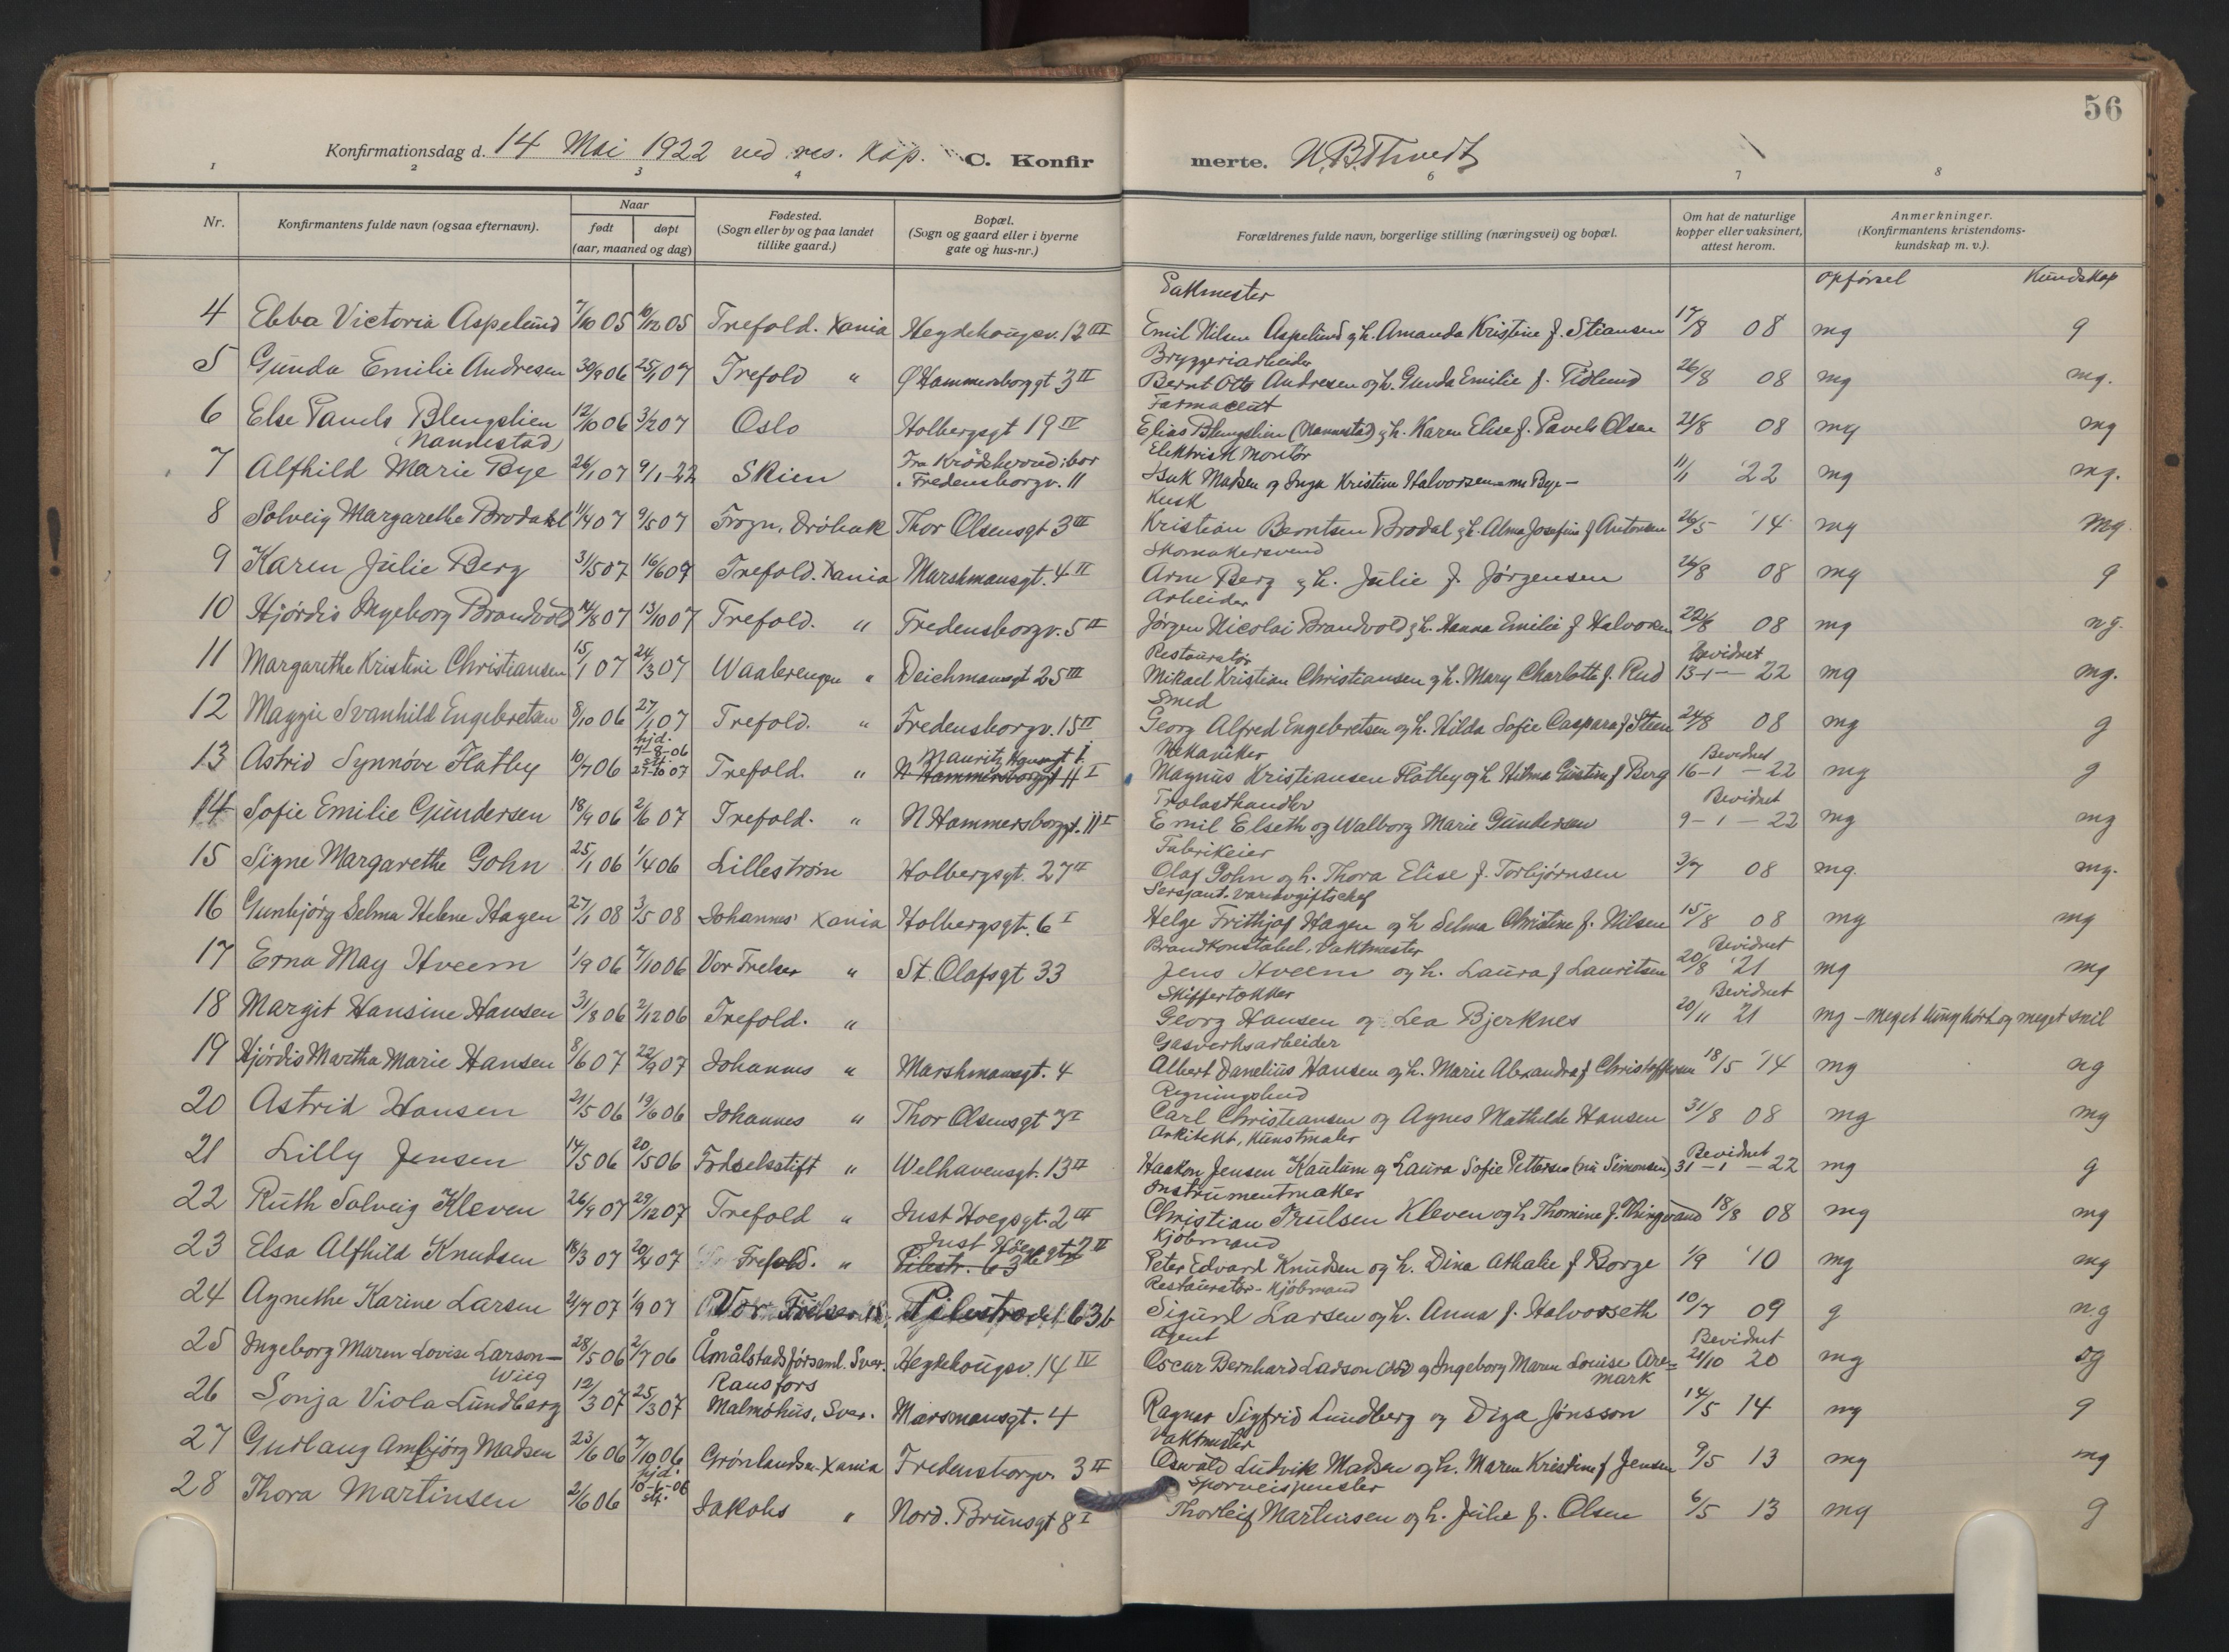 56
Konfirmationsdag d. 14 Mai 1922 ved res. kap. C. Konfir merte.
1 2 3 4 6 7 8
Nr. Konfirmantens fulde navn (ogsaa efternavn). Naar født døpt (aar, maaned og dag) Fødested. (Sogn eller by og paa landet tillike gaard.) Bopæl. (Sogn og gaard eller i byerne gate og hus-nr.) Forældrenes fulde navn, borgerlige stilling (næringsvei) og bopæl. Om hat de naturlige kopper eller vaksinert, attest herom. Anmerkninger. (Konfirmantens kristendoms- kundskap m. v.).
opførsel Kundskap
4 Ebba Victoria Aspelund 7/10 05 10/12 05 Trefold. Xania Heydehougsv. 12 III Emil Nilsen Aspelund og h. Amanda Kristine f. Stiansen 17/8 08 mg g
Bryggeriarbeider
5 Gunda Emilie Andresen 30/9 06 25/1 07 Trefold " Ø Hammersborggt 3 II Bernt Otto Andresen og h. Gunda Emilie f. Fidlund 26/8 08 mg mg.
Farmaceut
6 Else Pauels Blengslien (Nannestad) 12/10 06 3/2 07 Oslo Holbergsgt 19 IV Elias Blengslien (Nannestad) og h. Karen Elise f. Pavels Olsen 21/8 08 mg mg
Elektrisk Montør
7 Alfhild Marie Bye 26/1 07 9/1-22 Skien Fra Krødsherred: bor Fredensborgv. 11 Isak Madsen og Inga Kristine Halvorsen nu Bye - 11/1 '22 mg mg.
Kusk
8 Solveig Margarethe Brodahl 11/4 07 9/5 07 Frogn, Drøbak Thor Olsensgt 3 III Kristian Berntsen Brodal og h. Alma Josefine f Antonsen 26/5 '14 mg mg
Skomakersvend
9 Karen Julie Berg 31/5 07 16/6 07 Trefold. Xania Marstrmansgt. 4 II Arne Berg og h. Julie f. Jørgensen 26/8 08 mg g
Arbeider
10 Hjørdis Ingeborg Brandvold 14/8 07 13/10 07 Trefold. " Fredensborgv. 5 II Jørgen Nicolai Brandvold og h. Hanna Emilie f Halvorsen 22/8 08 mg ng.
Restauratør
11 Margarethe Kristine Christiansen 15/1 07 24/3 07 Waalerengen " Deichmansgt 25 III Mikael Kristian Christiansen og h. Mary Charlotte f. Rud bevidnet 13-1-22 mg mg.
Smed
12 Maggie Svanhild Engebretsen 8/10 06 27/1 07 Trefold. " Fredensborgv. 15 II Georg Alfred Engebretsen og h. Hilda Sofie Caspara f Steen 24/8 08 mg g
Mekaniker
13 Astrid Synnøve Flatby 10/7 06 hjd. 7-8-06 stf. 27-10 07 Trefold. " N Hammersborggt 11 I Magnus Kristiansen Flatby og h Hilma Gustine f Berg Bevidnet 16-1-22 mg g
Trælasthandler
14 Sofie Emilie Gundersen 18/9 06 2/6 07 Trefold. " N Hammersborggt. 11 I Emil Elseth og Walborg Marie Gundersen Bevidnet 9-1-22 mg mg
Fabrikeier
15 Signe Margarethe Gohn 25/1 06 1/4 06 Lillestrøm Holbergsgt. 27 II Olaf Gohn og h. Thora Elise f. Torbjørnsen 3/7 08 mg. mg.
Sersjant. Vareavgiftschef
16 Gunbjørg Selma Helene Hagen 27/1 08 3/5 08 Johannes' Xania Holbergsgt. 6 I Helge Frithjof Hagen og h Selma Christine f. Nilsen 15/8 08 mg mg
Brandkonstabel, Vaktmester
17 Erna May Hveem 1/9 06 7/10 06 Vor Frelser " St. Olafsgt 33 Jens Hveem og h. Laura f Lauritsen Bevidnet 20/8 '21 mg mg
Skiffertækker
18 Margit Hansine Hansen 31/8 06 2/12 06 Trefold. " Georg Hansen og Lea Bjerknes Bevidnet 20/11 21 mg - meget tunghørt og meget snil
Gasverksarbeider
19 Hjørdis Martha Marie Hansen 8/6 07 22/9 07 Johannes " Marstrmansgt. 4 Albert Danelius Hansen og h. Marie Alexandra f Christoffersen 18/5 '14 mg ng
Regningsbud
20 Astrid Hansen 21/5 06 19/6 06 Johannes " Thor Olsensgt 7 I Carl Christiansen og Agnes Mathilde Hansen 31/8 08 mg mg
Arkitekt, Kunstmaler
21 Lilly Jensen 14/5 06 20/5 06 Fødselsstift " Welhavensgt. 13 II Haakon Jensen Kaulum og Laura Sofie Pettersen (nu Simonsen) Bevidnet 31-1-22 mg g
Instrumentmaker
22 Ruth Solveig Kleven 26/9 07 29/12 07 Trefold " Just Hoegsgt. 2 III Christian Trulsen Kleven og h. Thomine f. Thingvand 18/8 08 mg mg
Kjøbmand
23 Elsa Alfhild Knudsen 18/3 07 20/4 07 Trefold. " Just Høegsgt 2 II Pilestr. 63 Peter Edvard Knudsen og h. Dina Athalie f Borge 1/9 '10 mg mg
Restauratør - Kjøbmand
24 Agnethe Karine Larsen 2/7 07 1/9 07 Vor Frelser Pilestrædet 63b Sigurd Larsen og h. Anna f. Halvorseth 10/7 09 g ng
Agent
25 Ingeborg Maren Lovise Larson-Wiig 28/5 06 2/7 06 Åmålstadsförsaml. Sver. Heydehougsv. 14 IV Oscar Bernhard Larson og Ingeborg Maren Louise Aremark Bevidnet 21/10 20 mg sg
26 Sonja Viola Lundberg 12/3 07 25/3 07 Malmöhus, Sver. Marsmansgt. 4 Ragnar Sigfrid Lundberg og Diga Jönsson 14/5 14 mg g
Vaktmester
27 Gudlaug Ambjørg Madsen 23/6 06 7/10 06 Grønlands.-Xania Fredensborgv. 3 II Oswald Ludvik Madsen og h. Maren Kristine f Jensen 9/5 13 mg mg
Sporveispenser
28 Thora Martinsen 2/6 06 hjd. 10-6-06 stf. Jakobs " Nord. Brunsgt 8 I Thorleif Martinsen og h. Julie f. Olsen 6/5 13 mg g